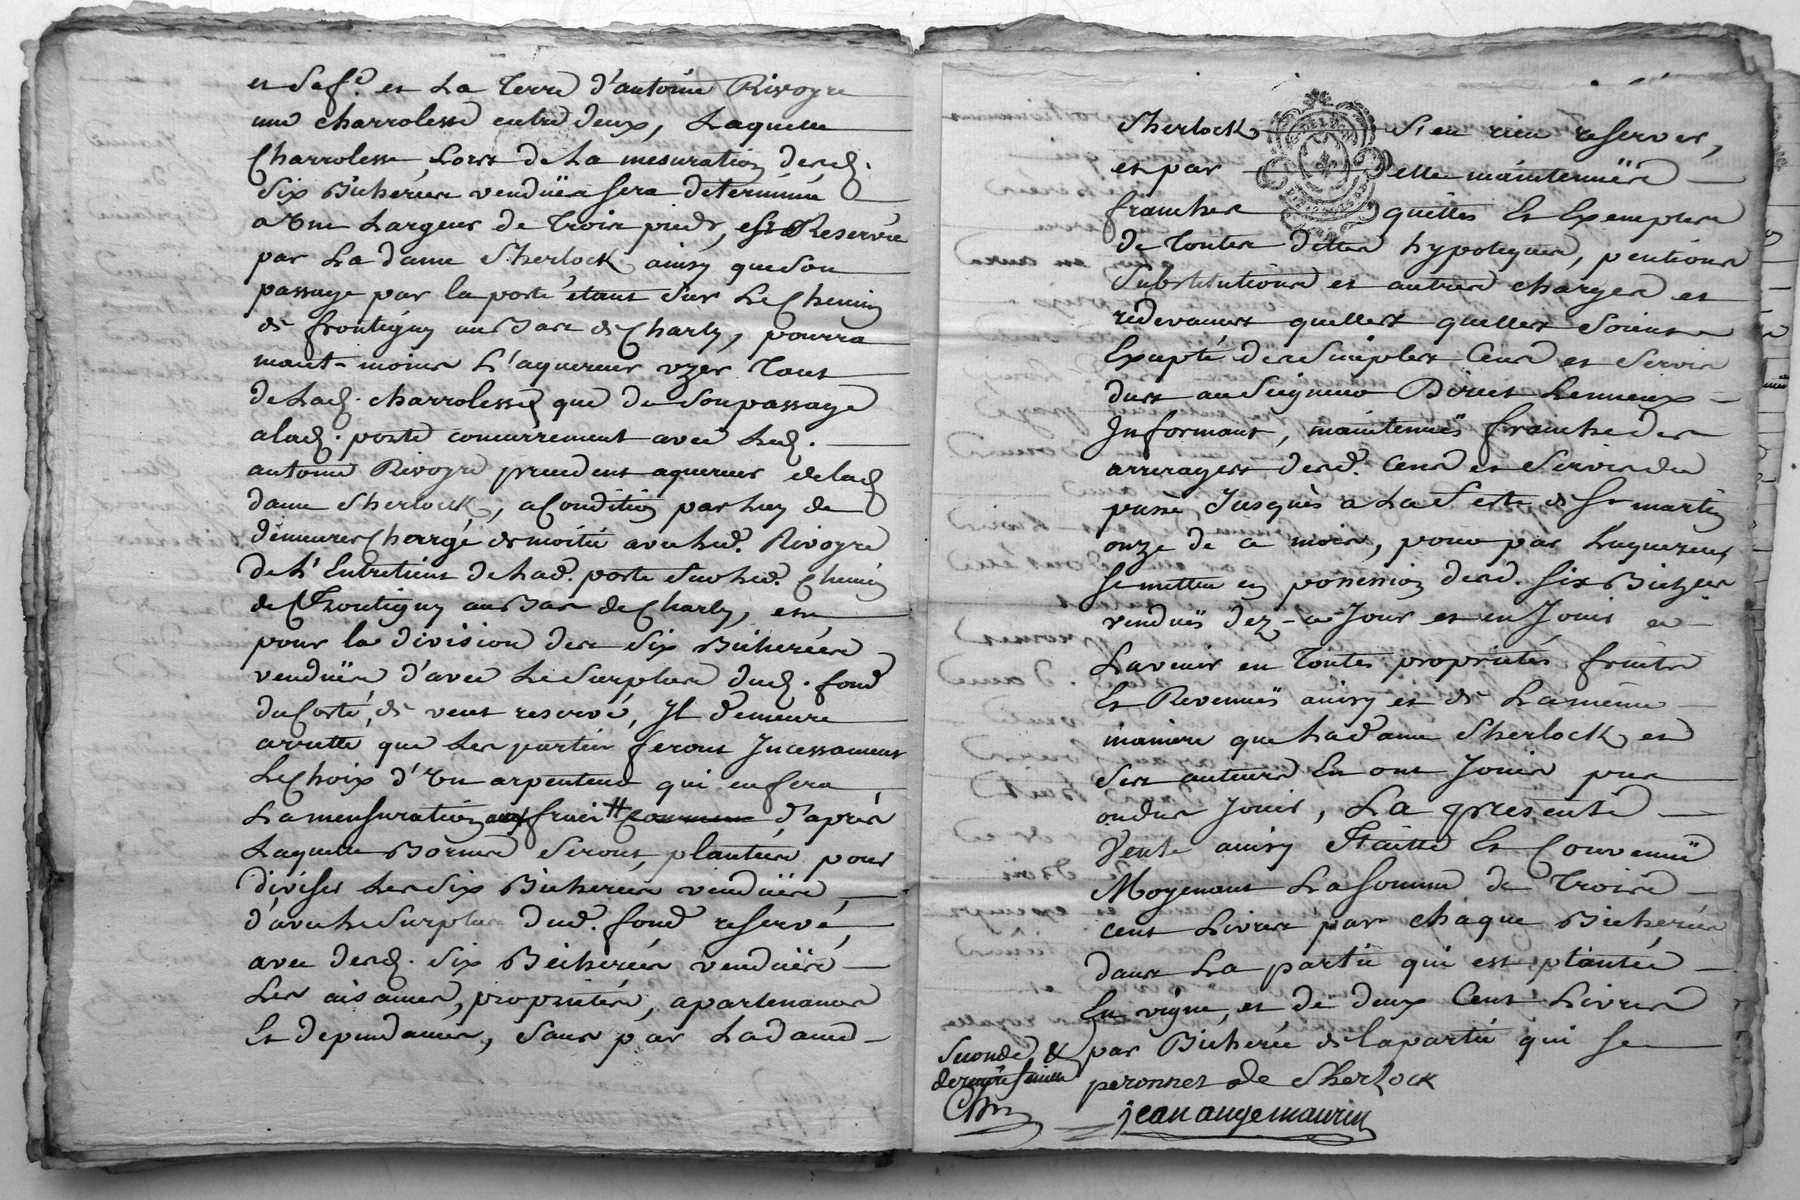 et Sa fe. et La Terre d'antoine Rivoyre
une charrolesse entre deux, Laquelle
Charrolesse, Lors de La mesuration desd.
Six Bicherées vendües sera determinée
a Une Largeur de Trois pieds, est Reservée
par La dame Sherlock ainsy que Son
passage par la porte étant Sur Le Chemin
de frontigny au Bas de Charly, pourra
neant-moins L'aquereur uzer Tant
de Lad. charrolesse que de Son passage
a lad. porte concurrement avec Led.
antoine Rivoyre precedent aquereur de lad.
dame Sherlock, a Condition par Luy de
demeurer Chargé de moitié avec Led. Rivoyre
de L'Entretient de Lad. porte Sur led. Chemin
de Frontigny au Bas de Charly, et
pour la division des Six Bicherées
vendües d'avec Le Surplus dud. fond
du Costé de vent reservé, Il demeure
arretté que Les parties feront Incessament
Le Choix d'Un arpenteur qui en fera
La mensuration # d'après
Laquelle Bornes Seront plantées pour
diviser Les Six Bicherées vendües
d'avec le Surplus dud. fond reservé,
avec desd. Six Bicherées vendües
Les aisances, proprietés, apartenances
Et dependances, Sans par La dame
Sherlock S'en rien reserver,
et par elle maintenües
franches quittes Et Exemptes
de Toutes dettes hypoteques, pentions
Substitutions et autres charges et
redevances quelles quelles Soient
Excepté des Simples Cens et Servis
dus au Seigneur Direct Lesnieux
Informant, maintenües franches des
arrerages desd. Cens et Servis du
passé Jusqués a La Feste de St martin
onze de ce mois, pour par L'aquereur
Se mettre en possession desd. Six Bicherées
vendües dez-ce-Jour et en Jouir a
Lavenir en Toutes proprietés fruits
Et Revenues ainsy et de La meme
maniere que La dame Sherlock et
Ses auteurs En ont Jouis pus
ou dus Jouir, La presente
Vente ainsy Faitte Et Convenue
Moyenant La Somme de Trois
cent Livres par chaque Bicherée
dans La partie qui est plantée
En vigne, et de deux Cent Livres
par Bicherée de la partie qui Se
Seconde &
peronnet de Sherlock
jean ange maurin